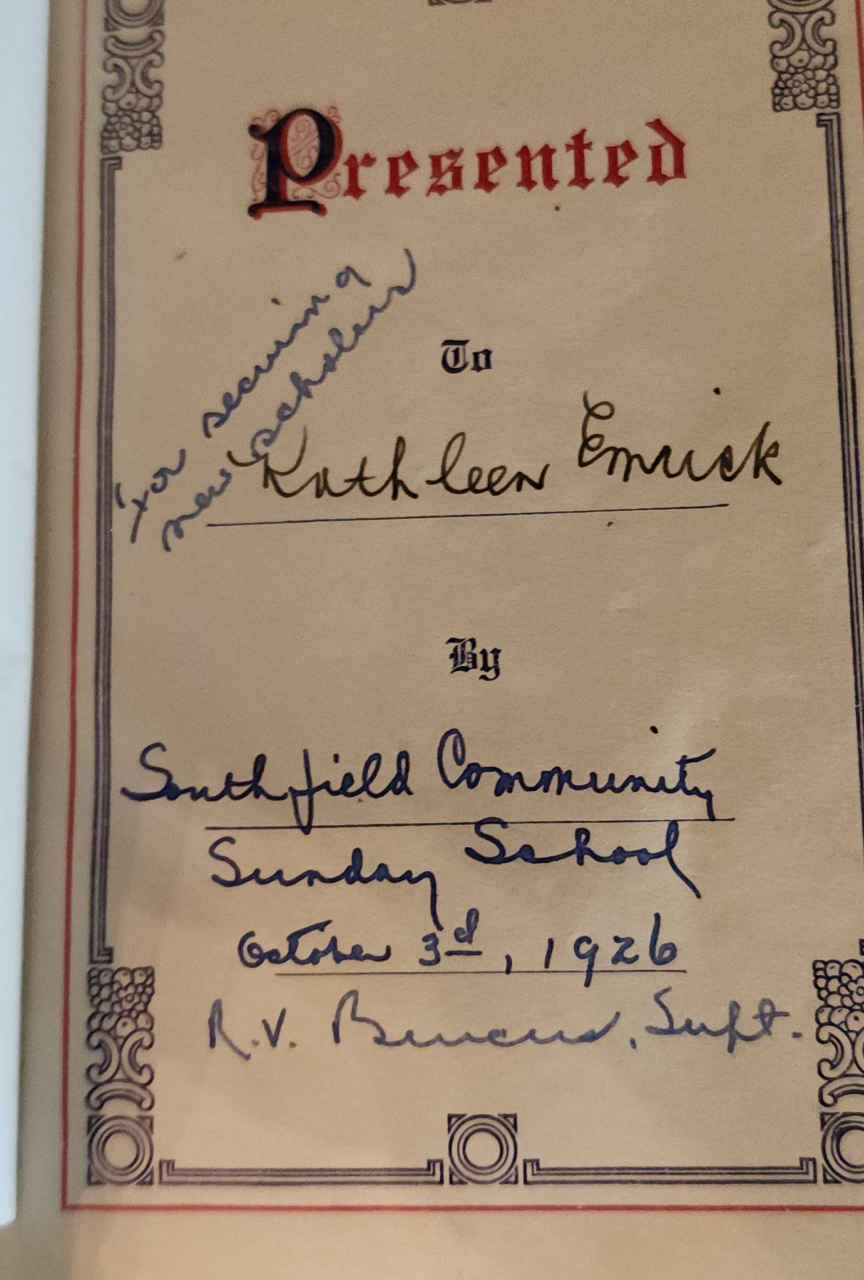 Presented
for securing a
new scholar
To
Kathleen Emrick
By
Southfield Community
Sunday School
October 3d, 1926
R.V. , Supt.